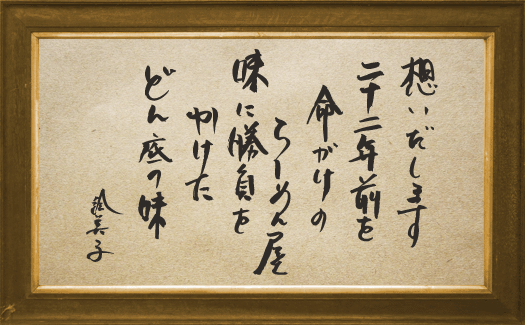 想いだします
二十二年前を
命がけの
らーめん屋
味に勝負を
かけた
どん底の味